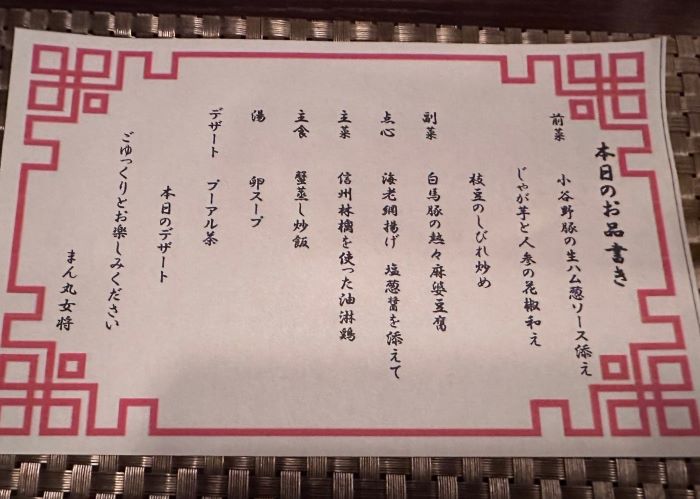 本日のお品書き
前菜 小谷野豚の生ハム葱ソース添え
じゃが芋と人参の花椒和え
枝豆のしびれ炒め
副菜 白馬豚の熱々麻婆豆腐
点心 海老網揚げ 塩葱醤を添えて
主菜 信州林檎を使った油淋鶏
主食 蟹蒸し炒飯
湯 卵スープ
デザート プーアル茶
本日のデザート
ごゆっくりとお楽しみください
まん丸女将